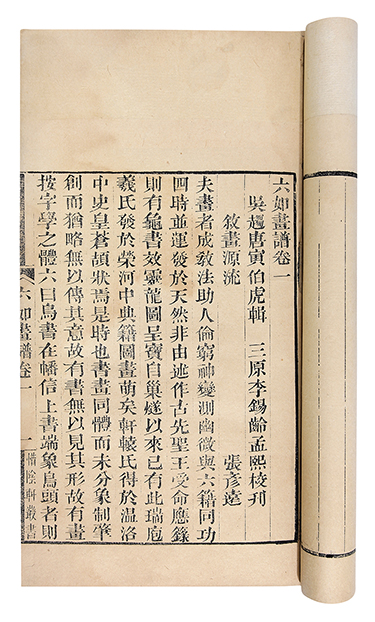 六如畫譜卷一
吳趨唐寅伯虎輯　三原李錫齡孟熙校刊
敘畫源流　張彥遠
夫畫者成敎法助人倫窮神變測幽微與六籍同功
四時並運發於天然非由述作古先聖王受命應籙
則有龜書效靈龍圖呈寶自巢燧以來已有此瑞庖
羲氏發於榮河中典籍圖畫萌矣軒轅氏得於温洛
中史皇蒼頡狀焉是時也書畫同體而未分象制肇
創而猶略無以傳其意故有書無以見其形故有畫
按字學之體六曰鳥書在幡信上書端象鳥頭者則
六如畫譜卷一　一　惜陰軒叢書